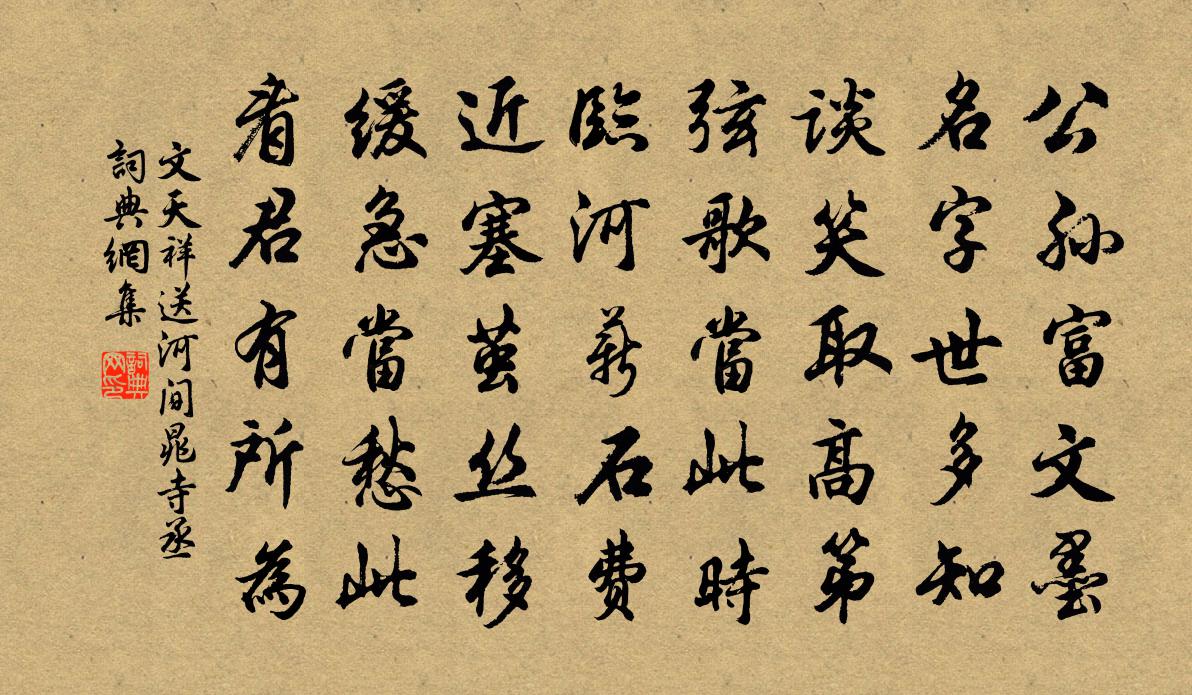 公孙富文墨
名字世多知
谈笑取高第
弦歌當此時
臨河薪石费
近塞茧丝移
缓急當愁此
看君有所為
文天祥送河间晁寺丞
詞典網集
詞典网印